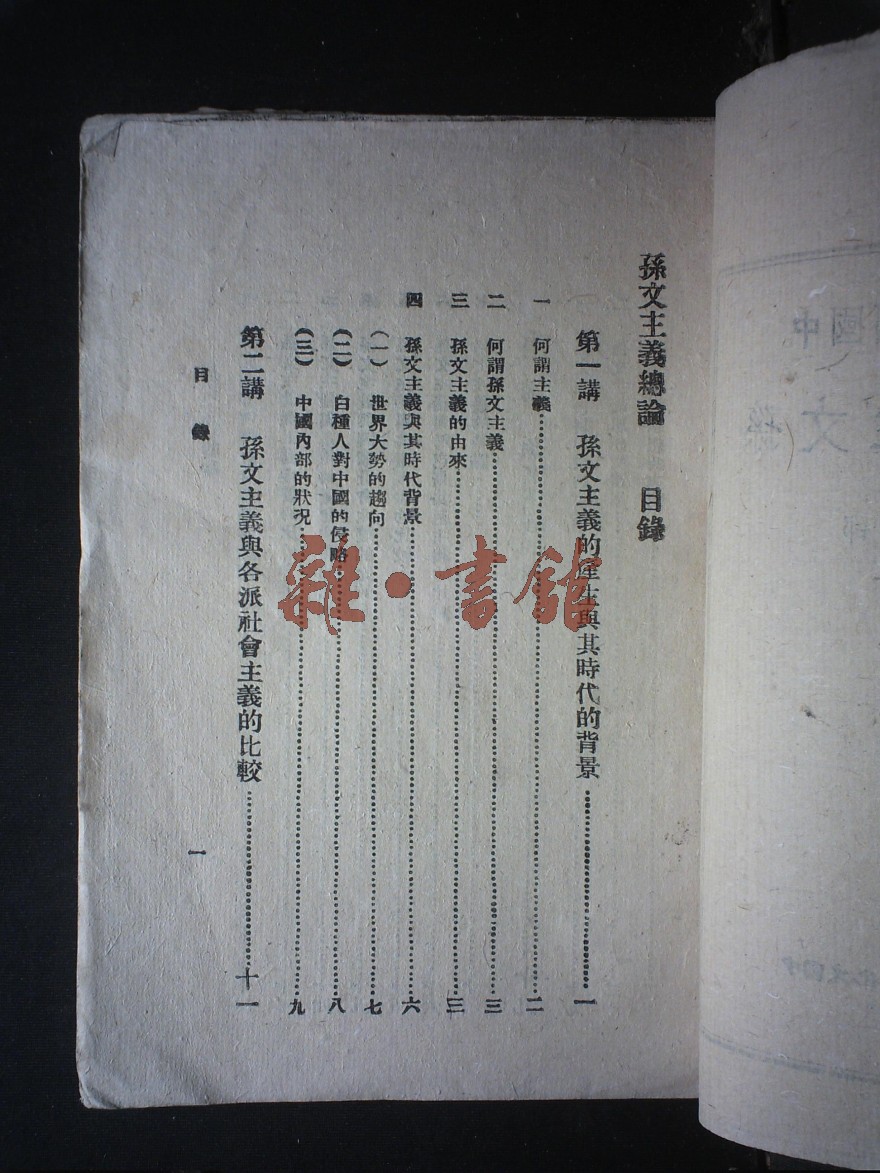 孫文主義總論 目錄
第一講 孫文主義的產生與其時代的背景……一
一 何謂主義……二
二 何謂孫文主義……三
三 孫文主義的由來……三
四 孫文主義與其時代背景……六
（一） 世界大勢的趨向……七
（二） 白種人對中國的侵略……八
（三） 中國內部的狀況……九
第二講 孫文主義與各派社會主義的比較……十一
目 錄
一
雜·書館